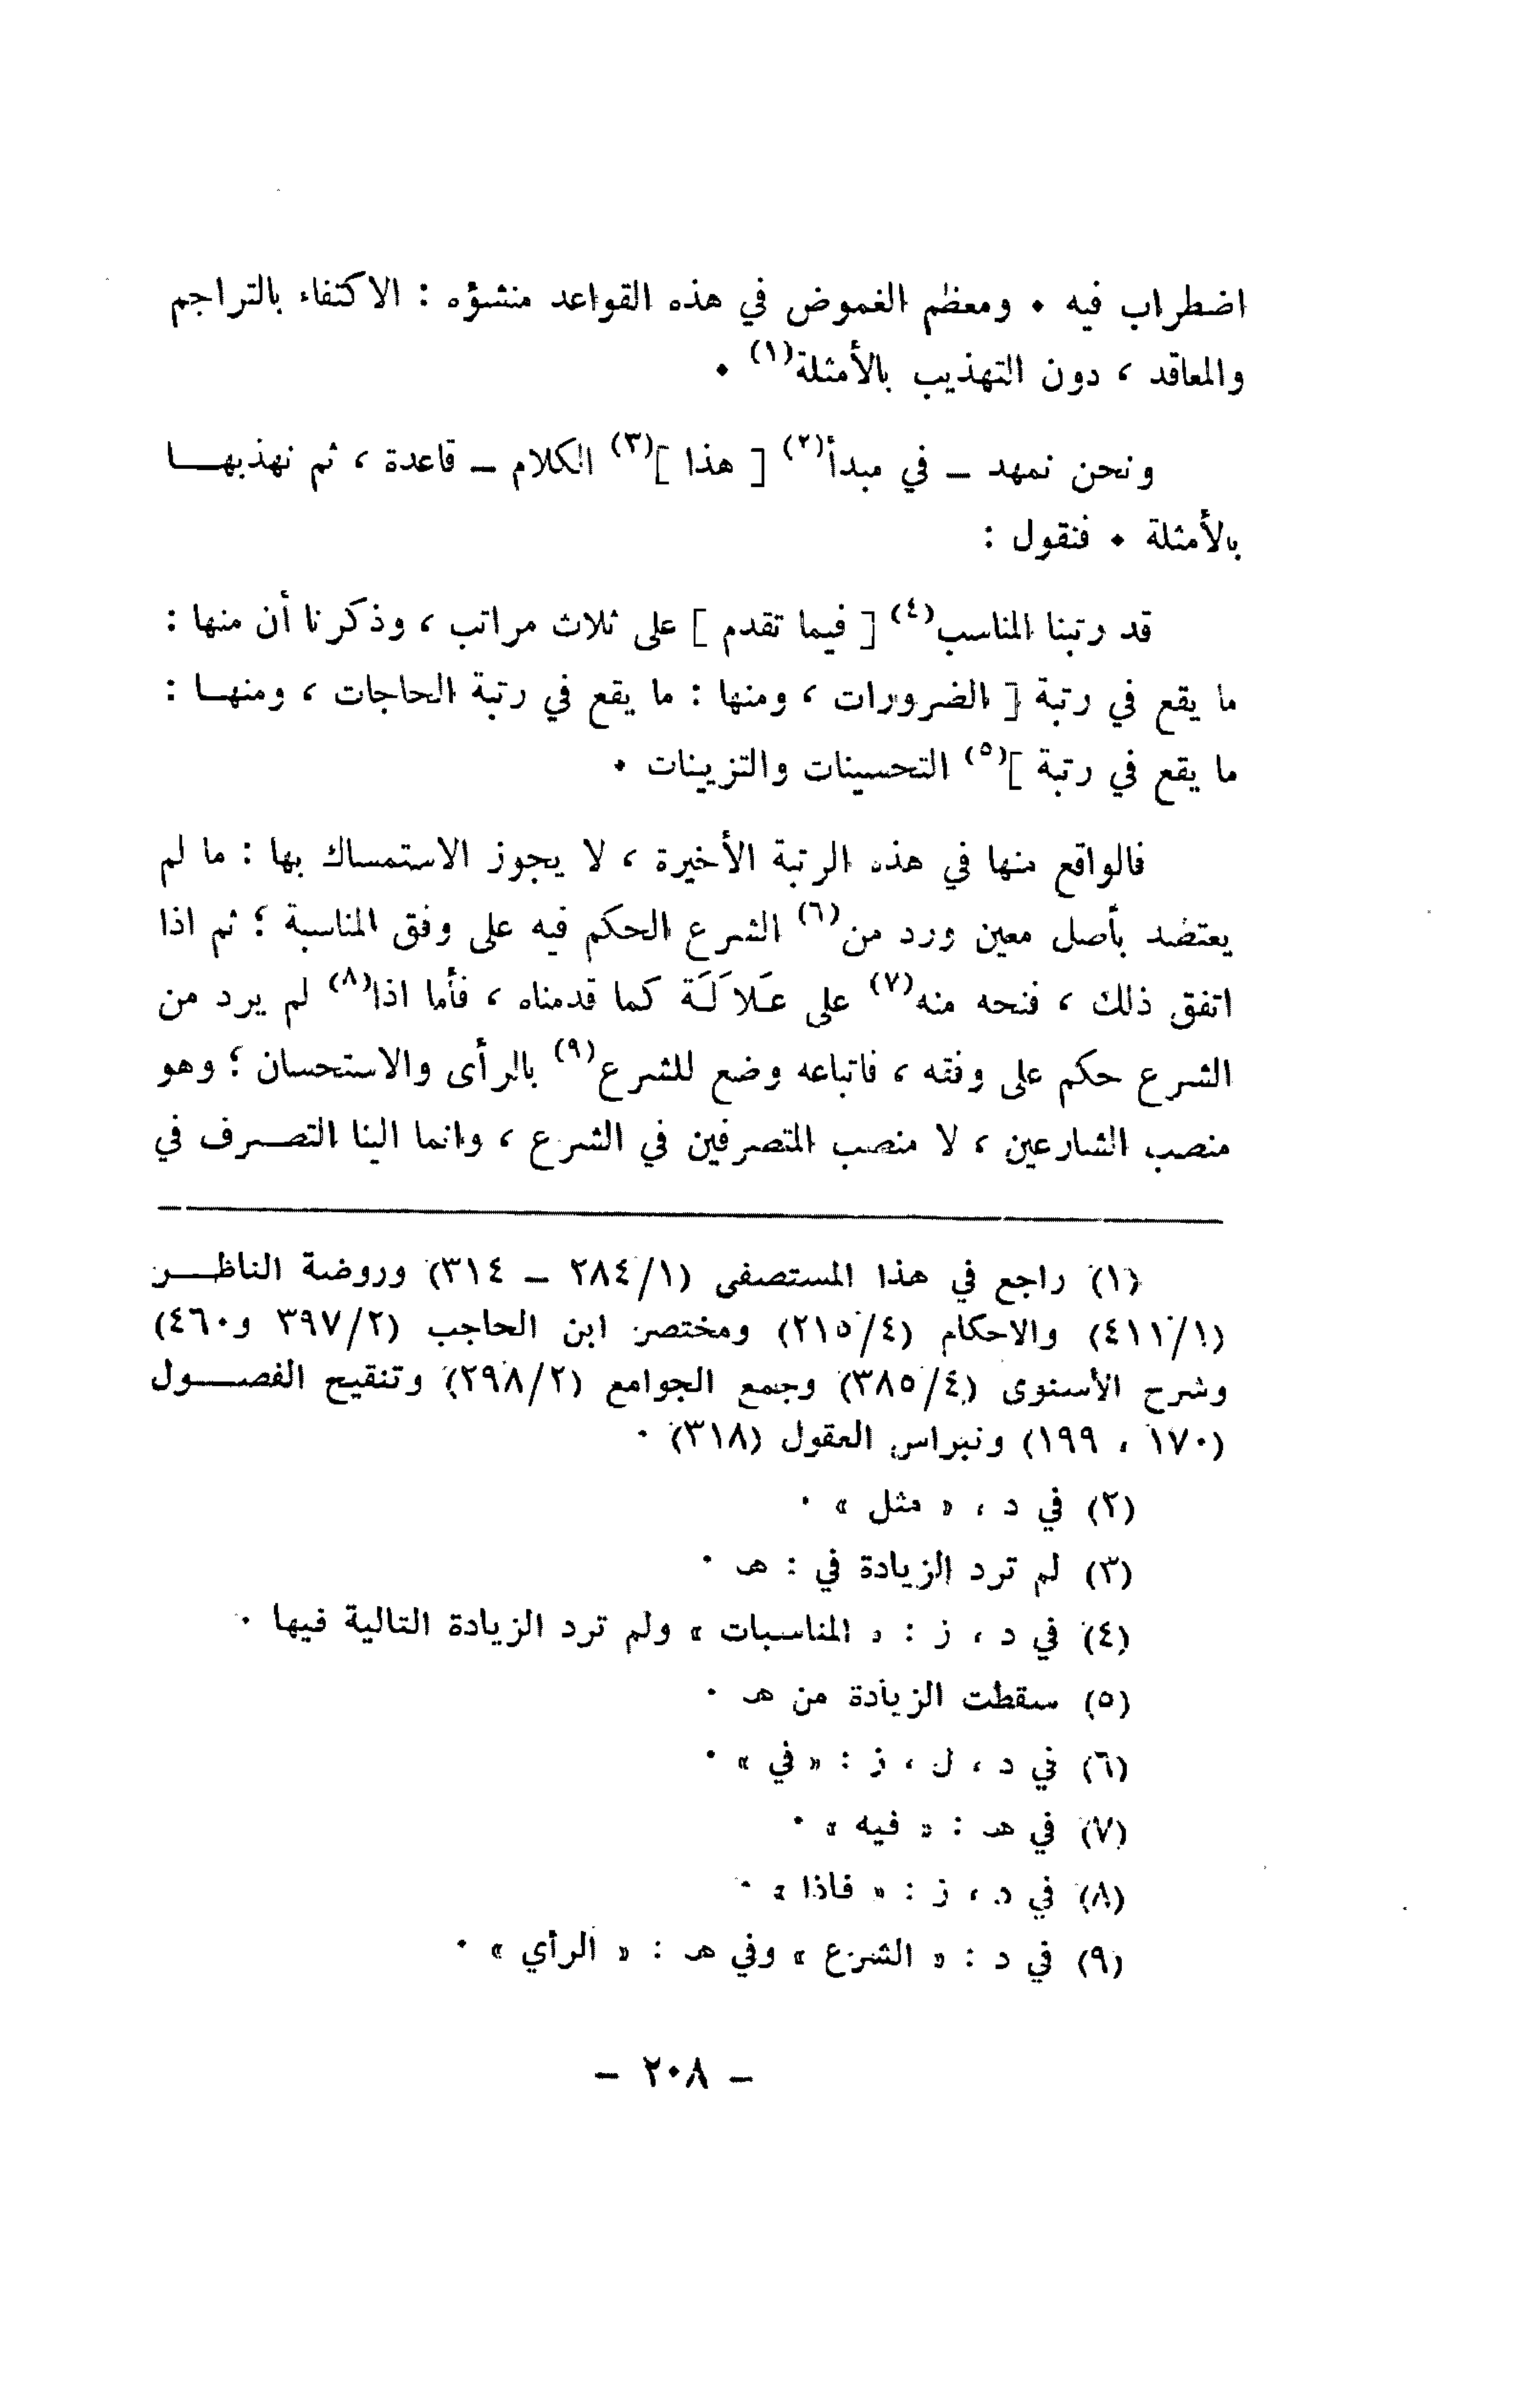 اضطراب فيه • ومعظم الغموض في هذه القواعد منشؤه : الاكتفاء بالتراجم
والمعاقد ، دون التهذيب بالأمثلة(١) •
ونحن نمهد – في مبدأ(٢) [ هذا ](٣) الكلام – قاعدة ، ثم نهذبهـــا
بالأمثلة • فنقول :
قد رتبنا المناسب(٤) [ فيما تقدم ] على ثلاث مراتب ، وذكرنا أن منها :
ما يقع في رتبة [ الضرورات ، ومنها : ما يقع في رتبة الحاجات ، ومنهــا :
ما يقع في رتبة ](٥) التحسينات والتزيينات •
فالواقع منها في هذه الرتبة الأخيرة ، لا يجوز الاستمساك بها : ما لم
يعتضد بأصل معين ورد من(٦) الشرع الحكم فيه على وفق المناسبة ؛ ثم اذا
اتفق ذلك ، فنحه منه(٧) على عَلاَلَة كما قدمناه ، فأما اذا(٨) لم يرد من
الشرع حكم على وفقه ، فاتباعه وضع للشرع(٩) بالرأى والاستحسان ؛ وهو
منصب الشارعين ، لا منصب المتصرفين في الشرع ، وانما الينا التصــرف في
(١) راجع في هذا المستصفى (١/٢٨٤ – ٣١٤) وروضة الناظـــر
(١/٤١١) والاحكام (٤/٢١٥) ومختصر ابن الحاجب (٢/٣٩٧ و٤٦٠)
وشرح الأسنوى (٤/٣٨٥) وجمع الجوامع (٢/٢٩٨) وتنقيح الفصـــول
(١٧٠ ، ١٩٩) ونبراس العقول (٣١٨) •
(٢) في د ، « مثل » •
(٣) لم ترد الزيادة في : هـ •
(٤) في د ، ز : « المناسبات » ولم ترد الزيادة التالية فيها •
(٥) سقطت الزيادة من هـ •
(٦) في د ، ل ، ز : « في » •
(٧) في هـ : « فيه » •
(٨) في د ، ز : « فاذا » •
(٩) في د : « الشرع » وفي هـ : « الرأي » •
– ٢٠٨ –